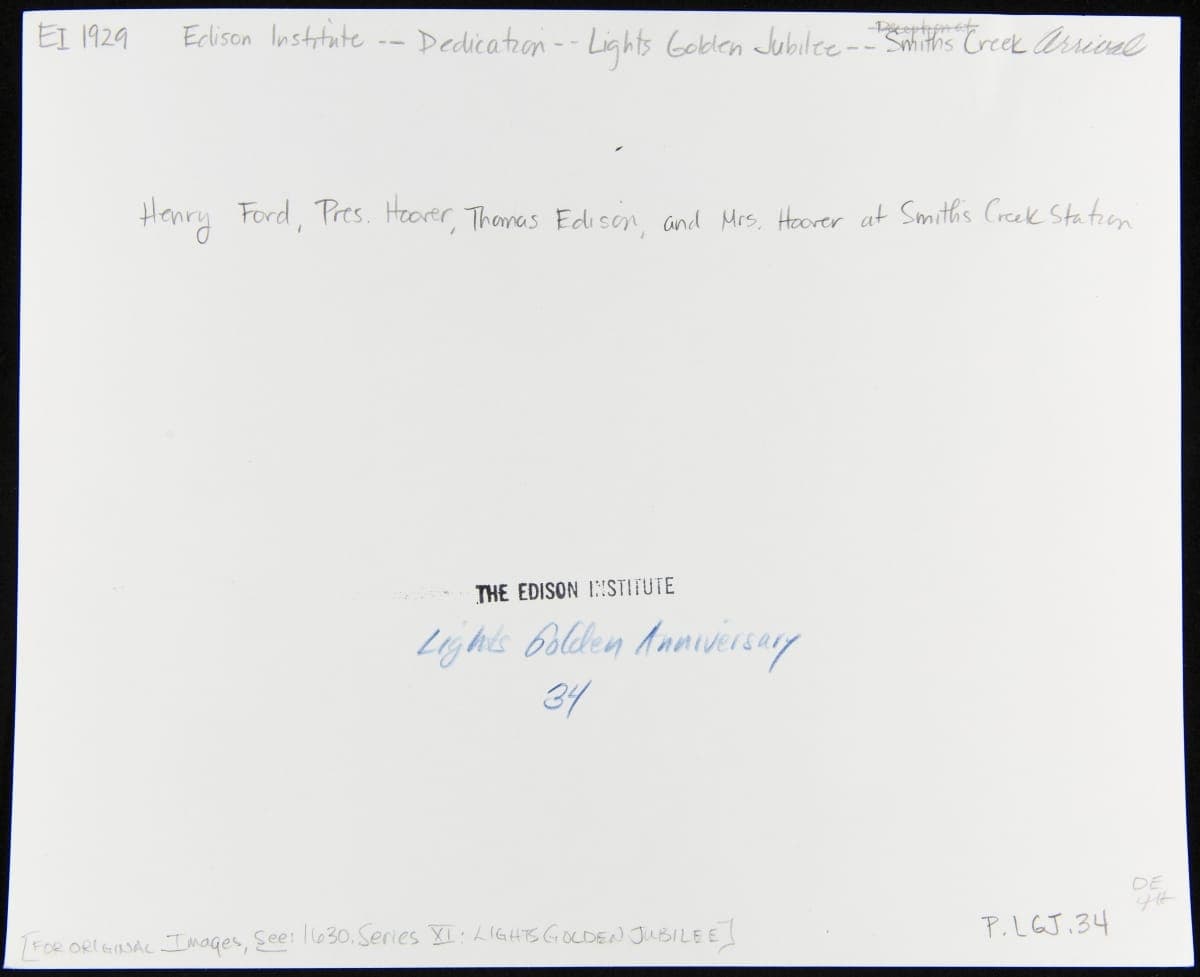 EI 1929 Edison Institute -- Dedication -- Lights Golden Jubilee -- Smiths Creek Arrival
Henry Ford, Pres. Hoover, Thomas Edison, and Mrs. Hoover at Smith's Creek Station
THE EDISON INSTITUTE
Lights Golden Anniversary
34
DE
P.LGJ.34
[FOR ORIGINAL Images, See: 1630, Series XI: LIGHTS GOLDEN JUBILEE]